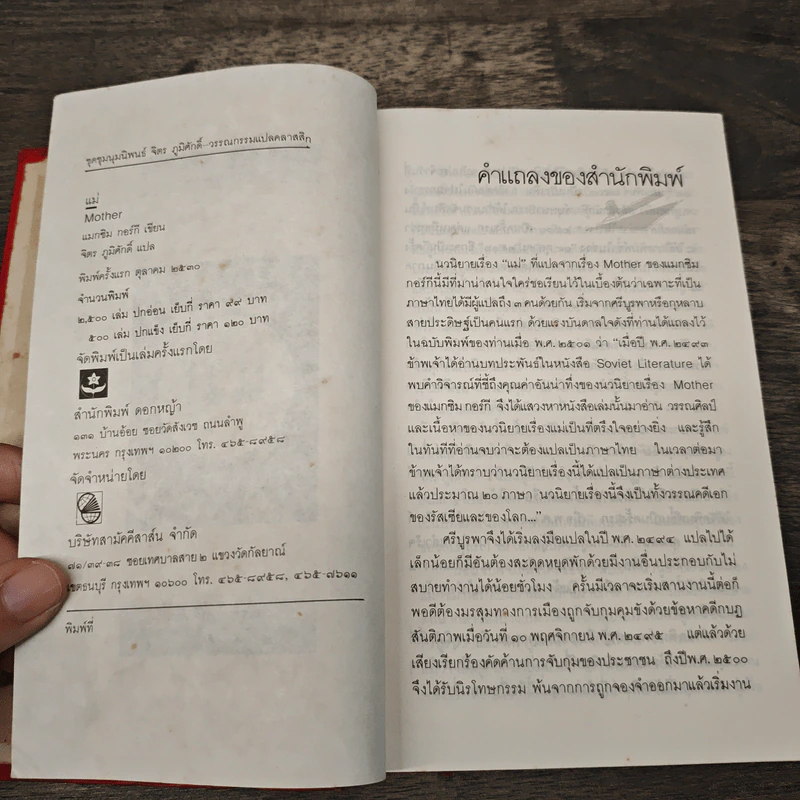 ชุดชุมนุมนิพนธ์ จิตร ภูมิศักดิ์--วรรณกรรมแปลคลาสสิก
แม่
Mother
แมกซิม กอร์กี เขียน
จิตร ภูมิศักดิ์ แปล
พิมพ์ครั้งแรก ตุลาคม ๒๕๓๐
จำนวนพิมพ์
๒,๕๐๐ เล่ม ปกอ่อน เย็บกี่ ราคา ๙๙ บาท
๕๐๐ เล่ม ปกแข็ง เย็บกี่ ราคา ๑๒๐ บาท
จัดพิมพ์เป็นเล่มครั้งแรกโดย
สำนักพิมพ์ ดอกหญ้า
๑๓๑ บ้านอ้อย ซอยวัดสังเวช ถนนลำพู
พระนคร กรุงเทพฯ ๑๐๒๐๐ โทร. ๔๖๕-๘๙๕๘
จัดจำหน่ายโดย
บริษัทสามัคคีสาส์น จำกัด
๗๑/๓๙-๓๘ ซอยเทศบาลสาย ๒ แขวงวัดกัลยาณ์
เขตธนบุรี กรุงเทพฯ ๑๐๖๐๐ โทร. ๔๖๕-๘๙๕๘, ๔๖๕-๗๖๑๑
พิมพ์ที่
คำแถลงของสำนักพิมพ์
นวนิยายเรื่อง “แม่” ที่แปลจากเรื่อง Mother ของแมกซิม
กอร์กีนี้มีที่มาน่าสนใจใคร่ขอเรียนไว้ในเบื้องต้นว่าเฉพาะที่เป็น
ภาษาไทยได้มีผู้แปลถึง ๓ คนด้วยกัน เริ่มจากศรีบูรพาหรือกุหลาบ
สายประดิษฐ์เป็นคนแรก ด้วยแรงบันดาลใจดังที่ท่านได้แถลงไว้
ในฉบับพิมพ์ของท่านเมื่อ พ.ศ. ๒๕๐๑ ว่า “เมื่อปี พ.ศ. ๒๔๙๓
ข้าพเจ้าได้อ่านบทประพันธ์ในหนังสือ Soviet Literature ได้
พบคำวิจารณ์ที่ชี้ถึงคุณค่าอันน่าทึ่งของนวนิยายเรื่อง Mother
ของแมกซิม กอร์กี จึงได้แสวงหาหนังสือเล่มนั้นมาอ่าน วรรณศิลป์
และเนื้อหาของนวนิยายเรื่องแม่เป็นที่ตรึงใจอย่างยิ่ง และรู้สึก
ในทันทีที่อ่านจบว่าจะต้องแปลเป็นภาษาไทย ในเวลาต่อมา
ข้าพเจ้าได้ทราบว่านวนิยายเรื่องนี้ได้แปลเป็นภาษาต่างประเทศ
แล้วประมาณ ๒๐ ภาษา นวนิยายเรื่องนี้จึงเป็นทั้งวรรณคดีเอก
ของรัสเซียและของโลก...”
ศรีบูรพาจึงได้เริ่มลงมือแปลในปี พ.ศ. ๒๔๙๔ แปลไปได้
เล็กน้อยก็มีอันต้องสะดุดหยุดพักด้วยมีงานอื่นประกอบกับไม่
สบายทำงานได้น้อยชั่วโมง ครั้นมีเวลาจะเริ่มสานงานนี้ต่อก็
พอดีต้องมรสุมทางการเมืองถูกจับกุมคุมขังด้วยข้อหาคดีกบฏ
สันติภาพเมื่อวันที่ ๑๐ พฤศจิกายน พ.ศ. ๒๔๙๕ แต่แล้วด้วย
เสียงเรียกร้องคัดค้านการจับกุมของประชาชน ถึงปีพ.ศ. ๒๕๐๐
จึงได้รับนิรโทษกรรม พ้นจากการถูกจองจำออกมาแล้วเริ่มงาน